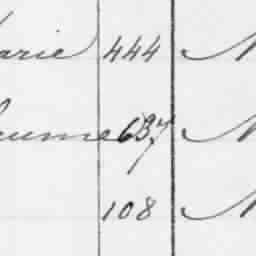 arie 444
aume 637
108